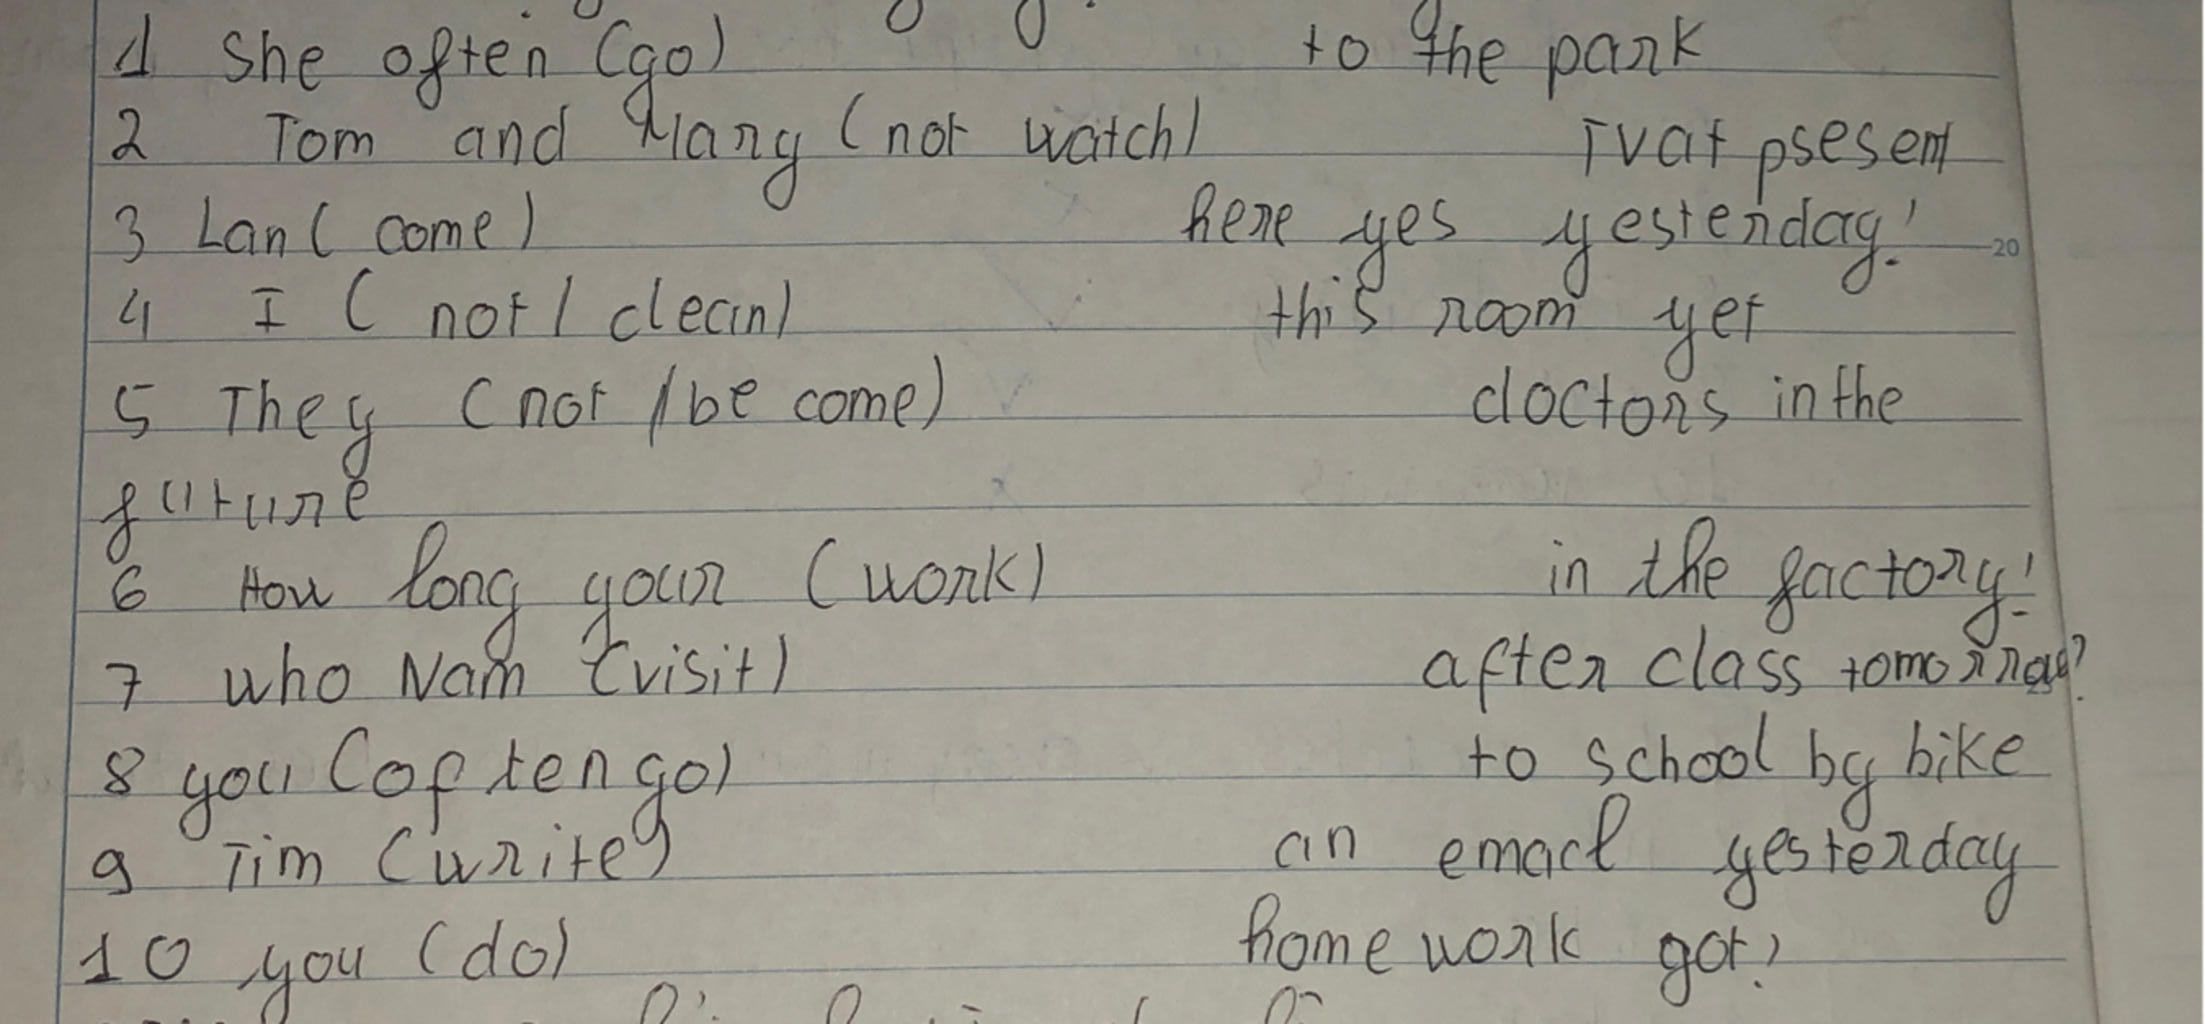 1 She often (go) to the park
2 Tom and Mary (not watch) TV at psesent
3 Lan ( come ) here yes yesterday!
4 I ( not / clean) this room yet
5 They (not / be come) doctors in the
future
6 How long your (work) in the factory!
7 who Nam (visit) after class tomorrow?
8 you (often go) to school by bike
9 Tim (write) an emacl yesterday
10 you (do) home work got?